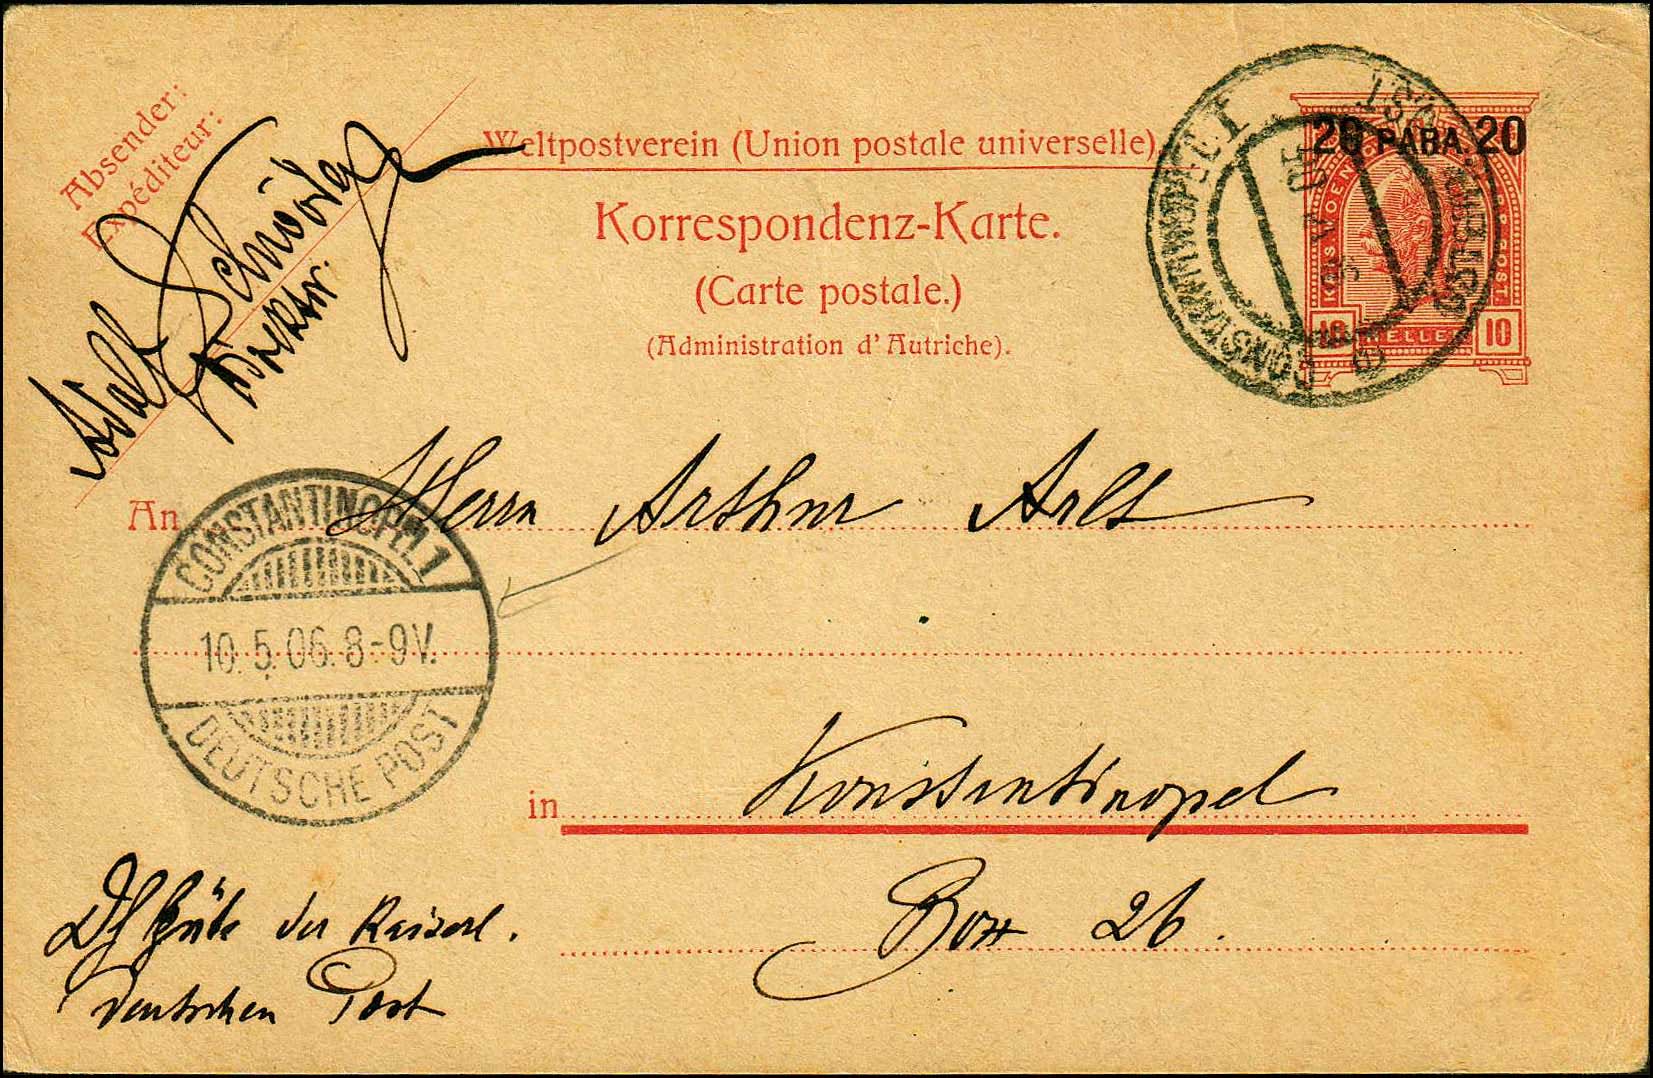 Absender:
Expéditeur:
Weltpostverein (Union postale universelle)
Korrespondenz-Karte.
(Carte postale.)
(Administration d'Autriche).
20 PARA 20
10 HELLER 10
An Herrn Arthur Arlt
CONSTANTINOPEL 1
10.5.06.8-9V.
DEUTSCHE POST
in Konstantinopel
Box 26.
der Kaiserl.
Deutschen Post